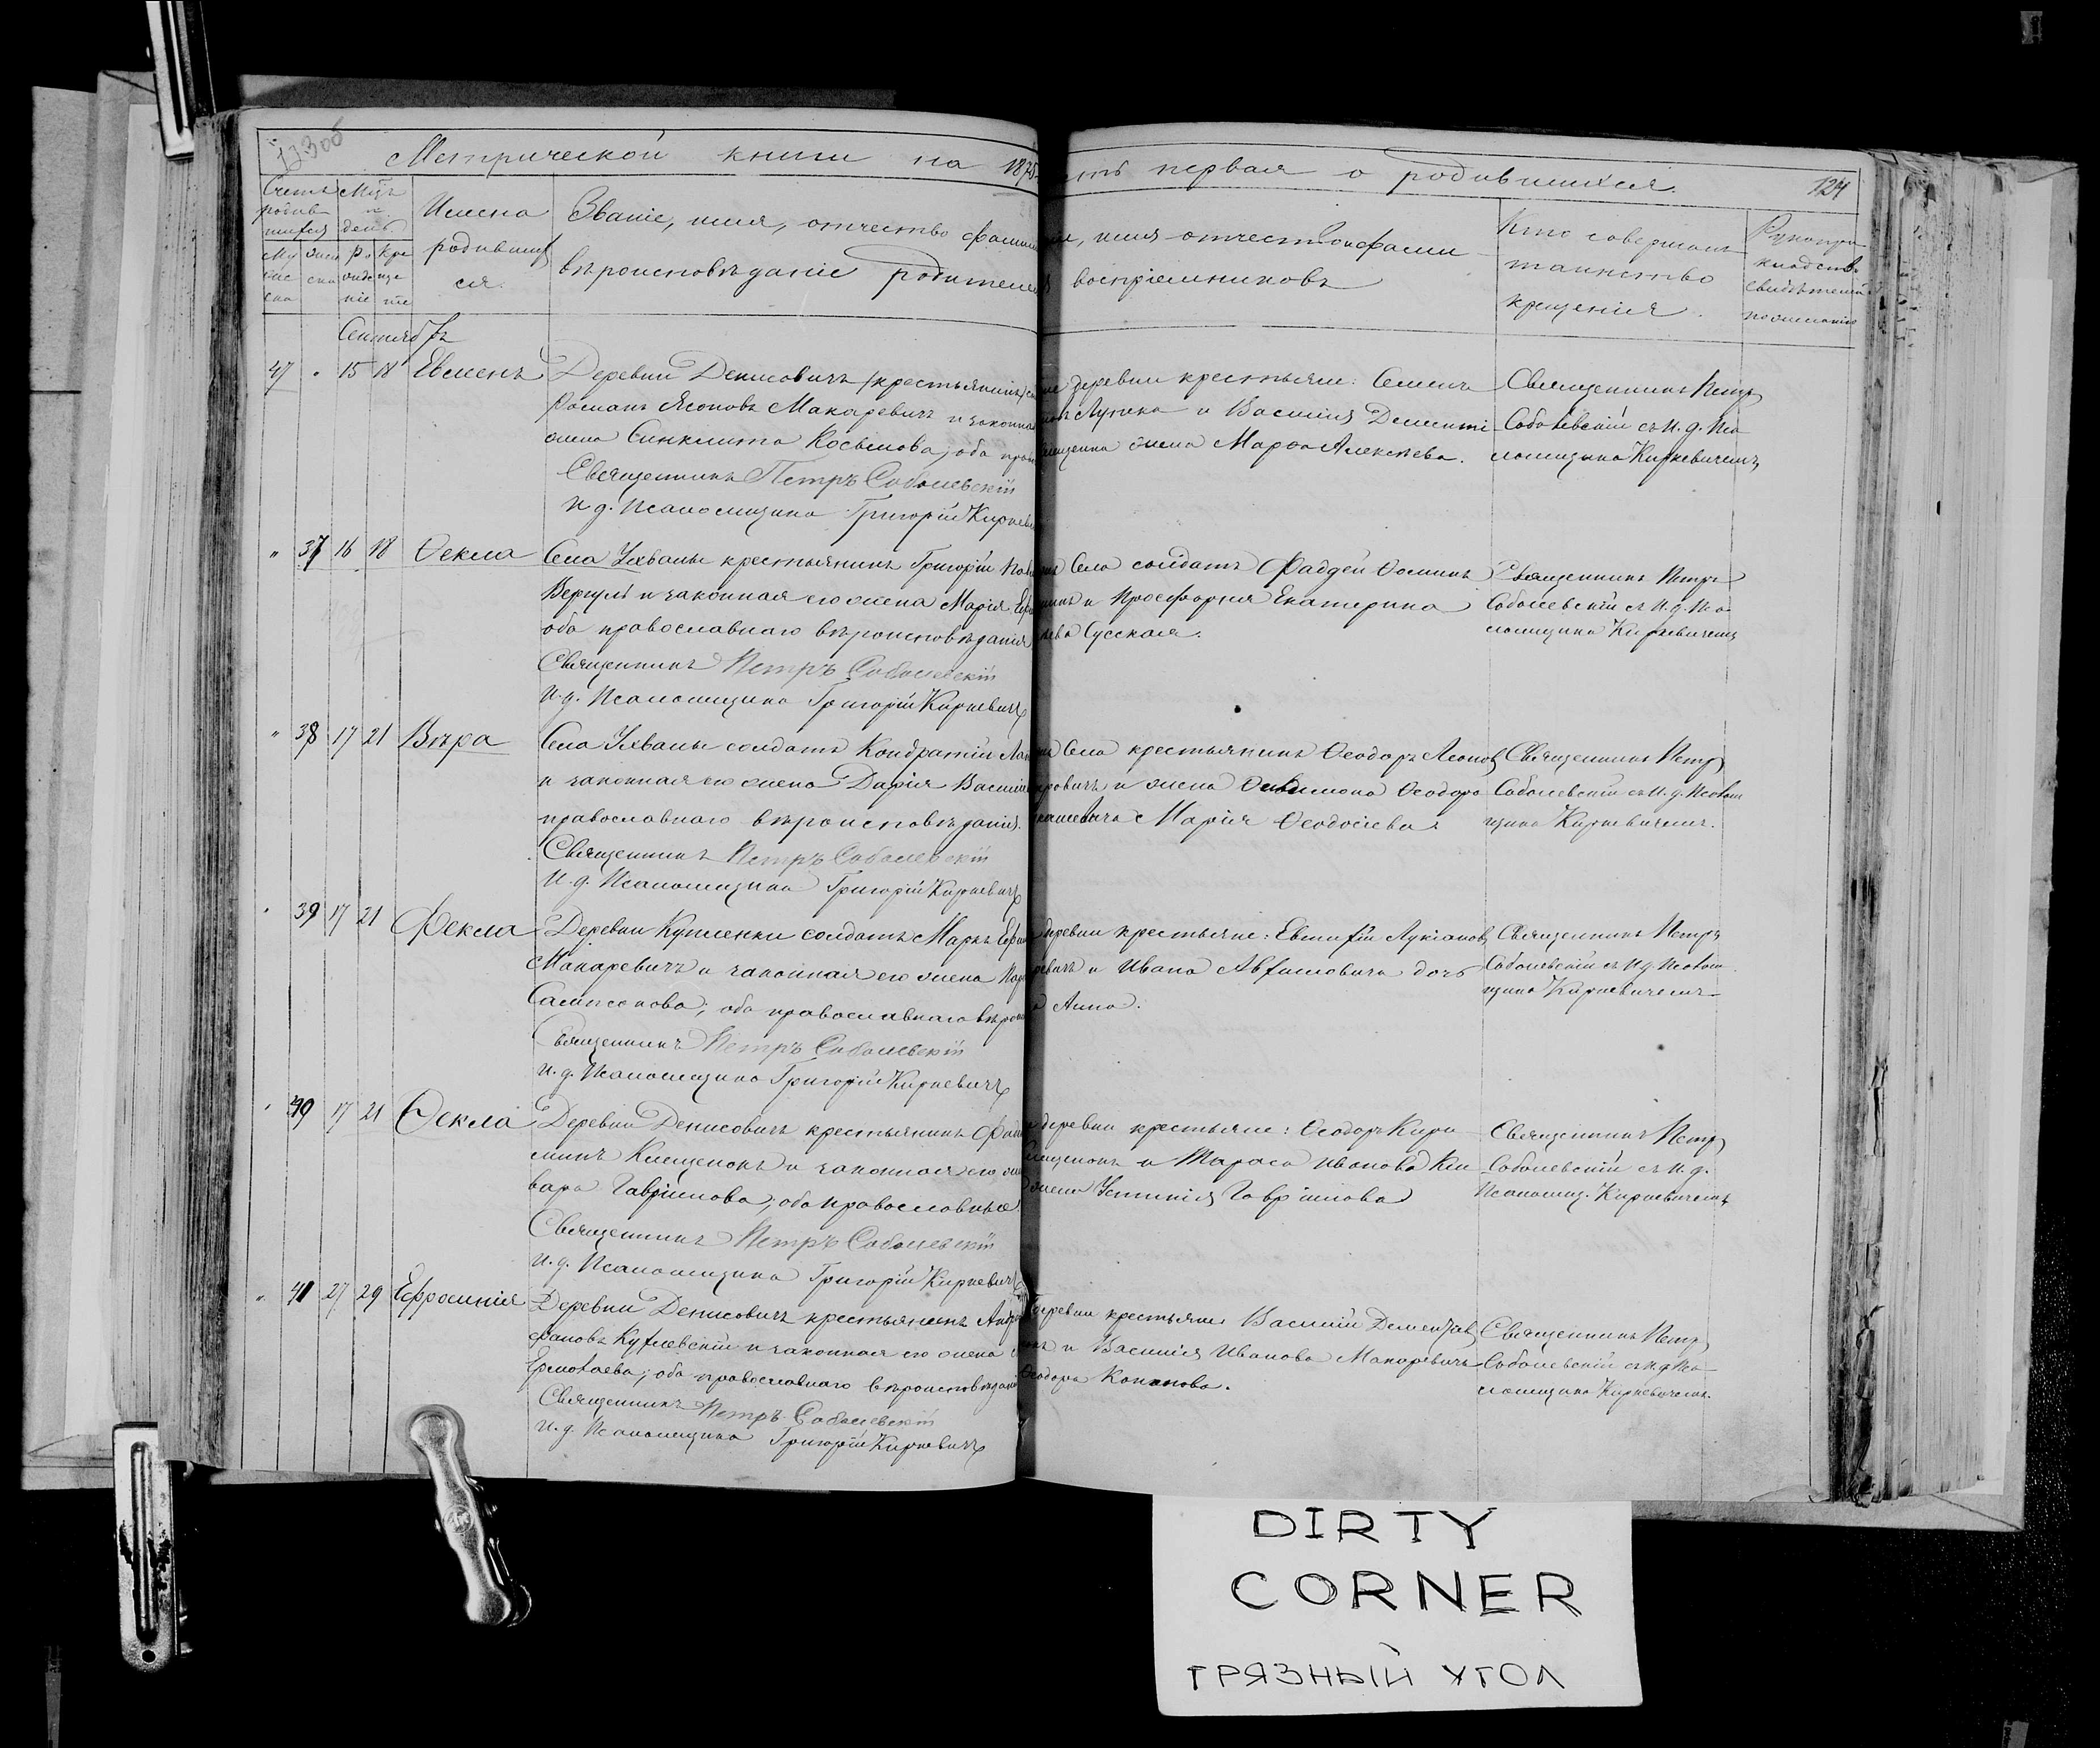 Метрической книги на 1875
сть первая о родившихся.
124
Счетъ родив-шихся
Мцъ и день.
Имена родившихся.
Званіе, имя, отчество фамилі
вѣроисповѣданіе родителей
имя отчество и фамилі
воспріемниковъ
Кто совершалъ
таинство
крещенія.
Рукопри
кладство
свидѣтелей
по желанію
Сентябрь
47 15 18 Евменъ
Деревни Денисовичъ крестьянинъ
Романъ Яковъ Макаревичъ и законна
жена Синклита Косьмова; оба прав
Священникъ Петръ Соболевскій
И. д. Псаломщика Григорій Киркеви
деревни крестьяне: Семенъ
Лучика и Василія Дементі
жена Марѳа Алексѣева.
Священникъ Петръ
Соболевскій съ И. д. Пса
ломщика Киркевичемъ
" 37 16 18 Ѳекла
Села Ухвалы крестьянинъ Григорій Пав
Вергуль и законная его жена Марія Ефр
оба православнаго вѣроисповѣданія
Священникъ Петръ Соболевскій
И. д. Псаломщика Григорій Киркевичъ
Села солдатъ Фаддей Ѳоминъ
и Просфорня Екатерина
ева Сусская.
Священникъ Петръ
Соболевскій съ И. д. Пса
ломщика Киркевичемъ
" 38 17 21 Вѣра
Села Ухвалы солдатъ Кондратій
и законная его жена Дарія Василі
православнаго вѣроисповѣданія.
Священникъ Петръ Соболевскій
И. д. Псаломщика Григорій Киркевичъ
Села крестьянинъ Ѳеодоръ Леонов
ровичъ и жена Филимона Ѳеодоро
кашевича Марія Ѳеодосіева
Священникъ Петръ
Соболевскій съ И. д. Псалом
щика Киркевичемъ.
" 39 17 21 Фекла
Деревни Купленки солдатъ Маркъ Ефи
Макаревичъ и законная его жена
Сампсонова; оба православнаго вѣрои
Священникъ Петръ Соболевскій
И. д. Псаломщика Григорій Киркевичъ
деревни крестьяне: Евтихій Лукіановъ
ревичъ и Ивана Авхимовича дочь
Анна.
Священникъ Петръ
Соболевскій съ И. д. Псалом
щика Киркевичемъ
" 40 17 21 Ѳекла
Деревни Денисовичъ крестьянинъ
минъ Клещенокъ и законная его же
вара Гавріилова; оба православные
Священникъ Петръ Соболевскій
И. д. Псаломщика Григорій Киркевичъ
деревни крестьяне: Ѳеодоръ Кири
лещенокъ и Тараса Иванова Кле
жена Устинія Гавріилова
Священникъ Петръ
Соболевскій съ И. д.
Псаломщ. Киркевичемъ
" 41 27 29 Ефросинія
Деревни Денисовичъ крестьянинъ Андр
фановъ Куклевскій и законная его жена
Ермолаева; оба православнаго вѣроисповѣдані
Священникъ Петръ Соболевскій
И. д. Псаломщика Григорій Киркевичъ
деревни крестьяне Василій Дементьев
и Василія Иванова Макаревича
Ѳеодора Кононова.
Священникъ Петръ
Соболевскій съ И. д. Пса
ломщика Киркевичемъ.
DIRTY
CORNER
ГРЯЗНЫЙ УГОЛ